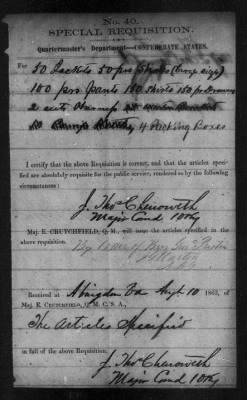 No. 40.
SPECIAL REQUISITION.
Quartermaster's Department—CONFEDERATE STATES.
For
50 Jackets 50 prs Shoes (large size)
100 prs pants 100 Shirts 150 prs Drawers
2
4 Packing Boxes
I certify that the above Requisition is correct, and that the articles
specified are absolutely requisite for the public service, rendered so by the following
circumstances:
J. Tho Chenoweth
Major Comd 10th
Maj. E. CRUTCHFIELD, Q. M., will issue the articles specified in the
above requisition.
By order of Brig Gen
Received at Abingdon Va Augt 10 1863, of
Maj. E. CRUTCHFIELD, Q. M. C. S. A.,
The articles Specified
in full of the above Requisition.
J. Tho Chenoweth
Major Comd 10th